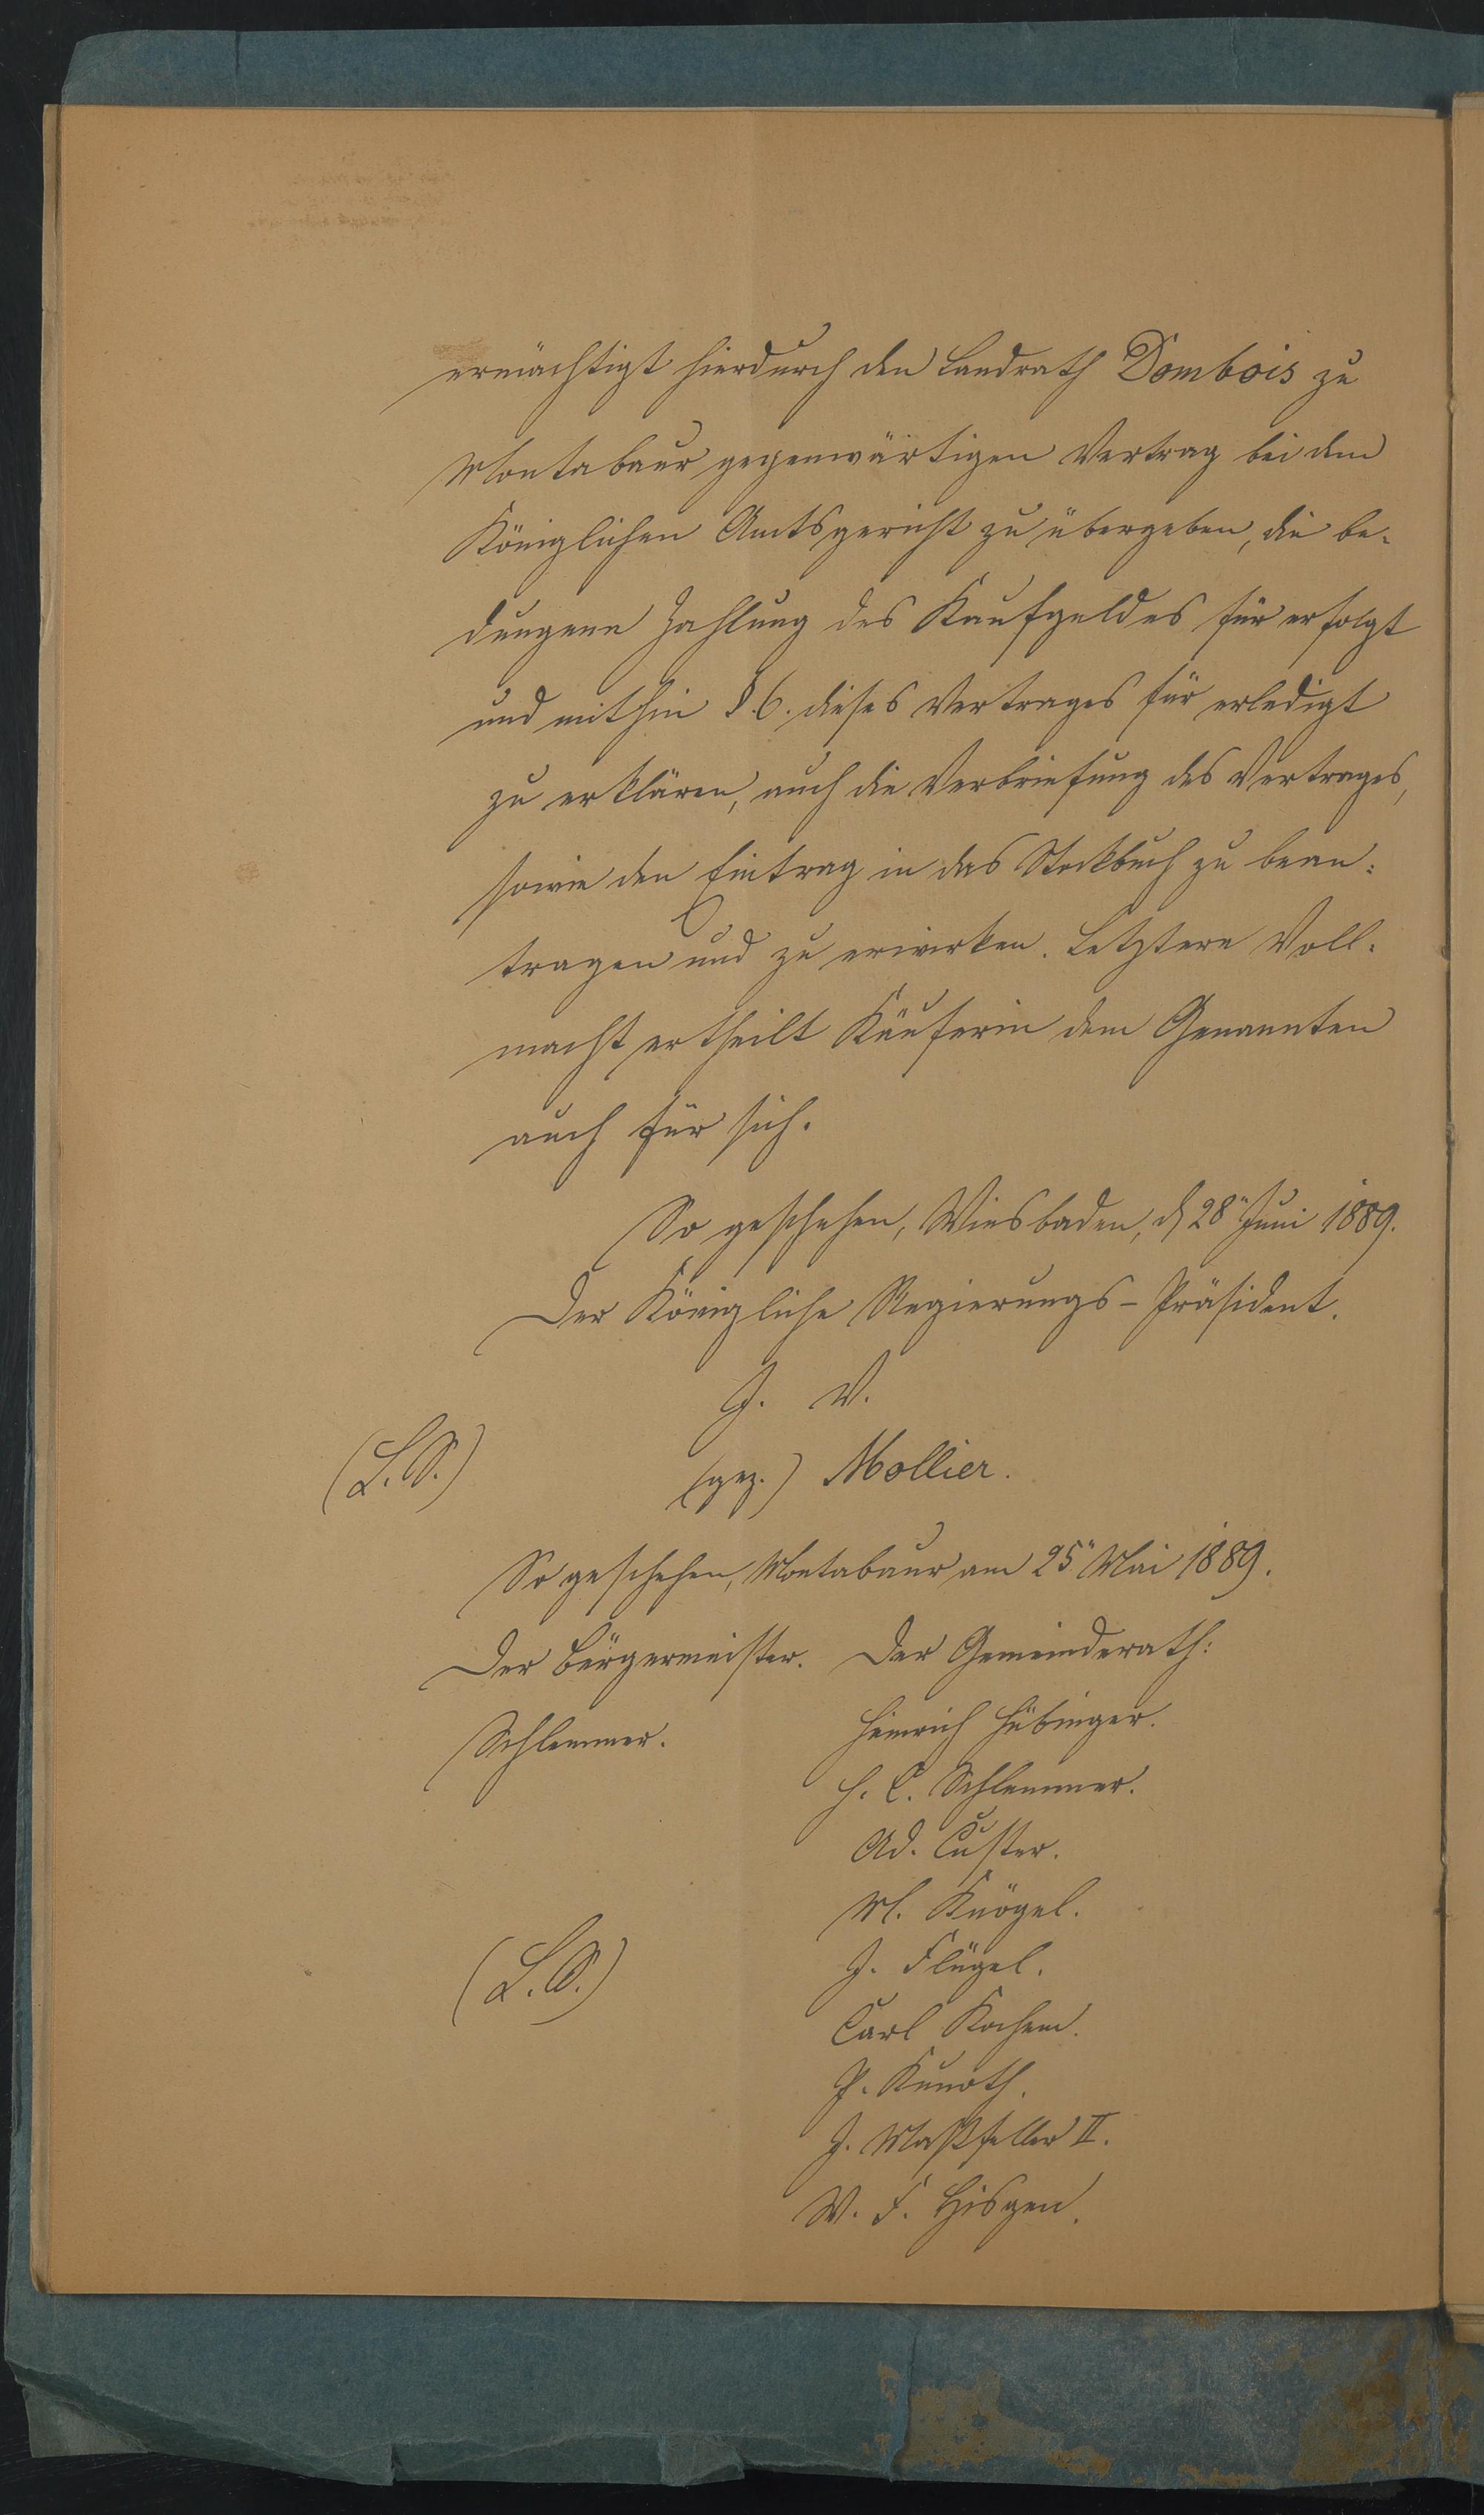 ermächtigt hierdurch den Landrath Dombois zu
Montabaur gegenwärtigen Vertrag bei dem
Königlichen Amtsgericht zu übergeben, die be-
dungene Zahlung des Kaufgeldes für erfolgt
und mithin §. 6. dieses Vertrages für erledigt
zu erklären, auch die Verbriefung des Vertrages,
sowie den Eintrag in das Stockbuch zu bean-
tragen und zu erwirken. Letztere Voll-
macht ertheilt Käuferin dem Genannten
auch für sich.
So geschehen, Wiesbaden, d. 28" Juni 1889.
Der Königliche Regierungs-Präsident.
J. V.
(L.S.) (gez.) Mollier.
So geschehen, Montabaur am 25" Mai 1889.
Der Bürgermeister. Der Gemeinderath:
Schlemmer. Heinrich Hübinger.
H. C. Schlemmer.
Ad. Custer.
M. Knögel.
J. Flügel.
(L.S.) Carl Kochem.
P. Kunoth.
J. Maßfeller II.
W. F. Hisgen.